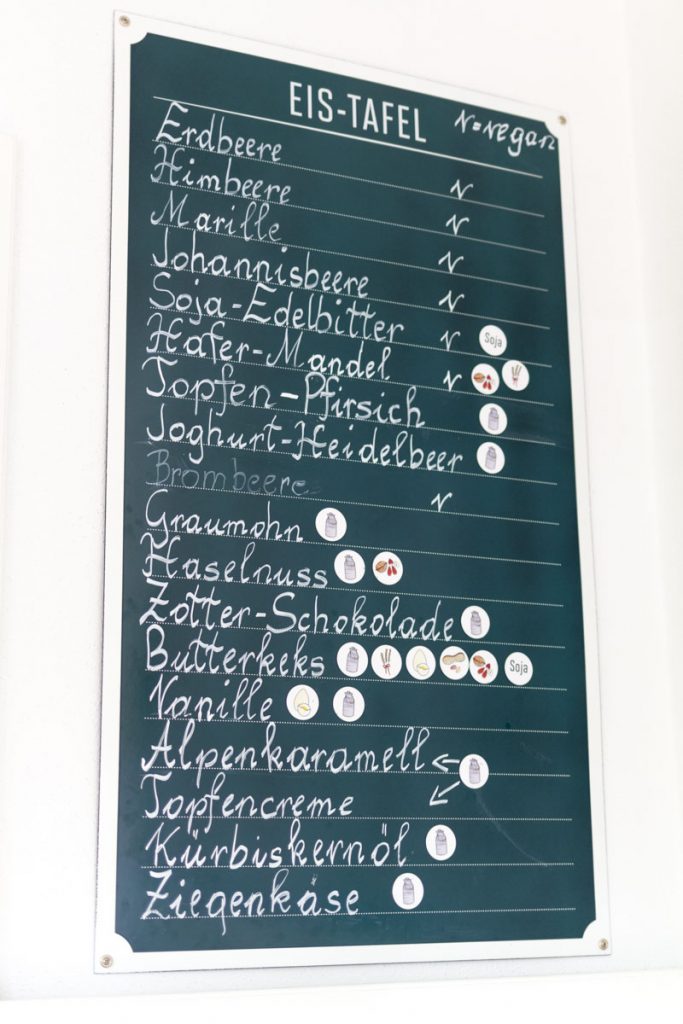 EIS-TAFEL v=vegan
Erdbeere v
Himbeere v
Marille v
Johannisbeere v
Soja-Edelbitter v Soja
Hafer-Mandel v
Topfen-Pfirsich
Joghurt-Heidelbeer
Brombeere v
Graumohn
Haselnuss
Zotter-Schokolade
Butterkeks Soja
Vanille
Alpenkaramell ←
Topfencreme ↙
Kürbiskernöl
Ziegenkäse